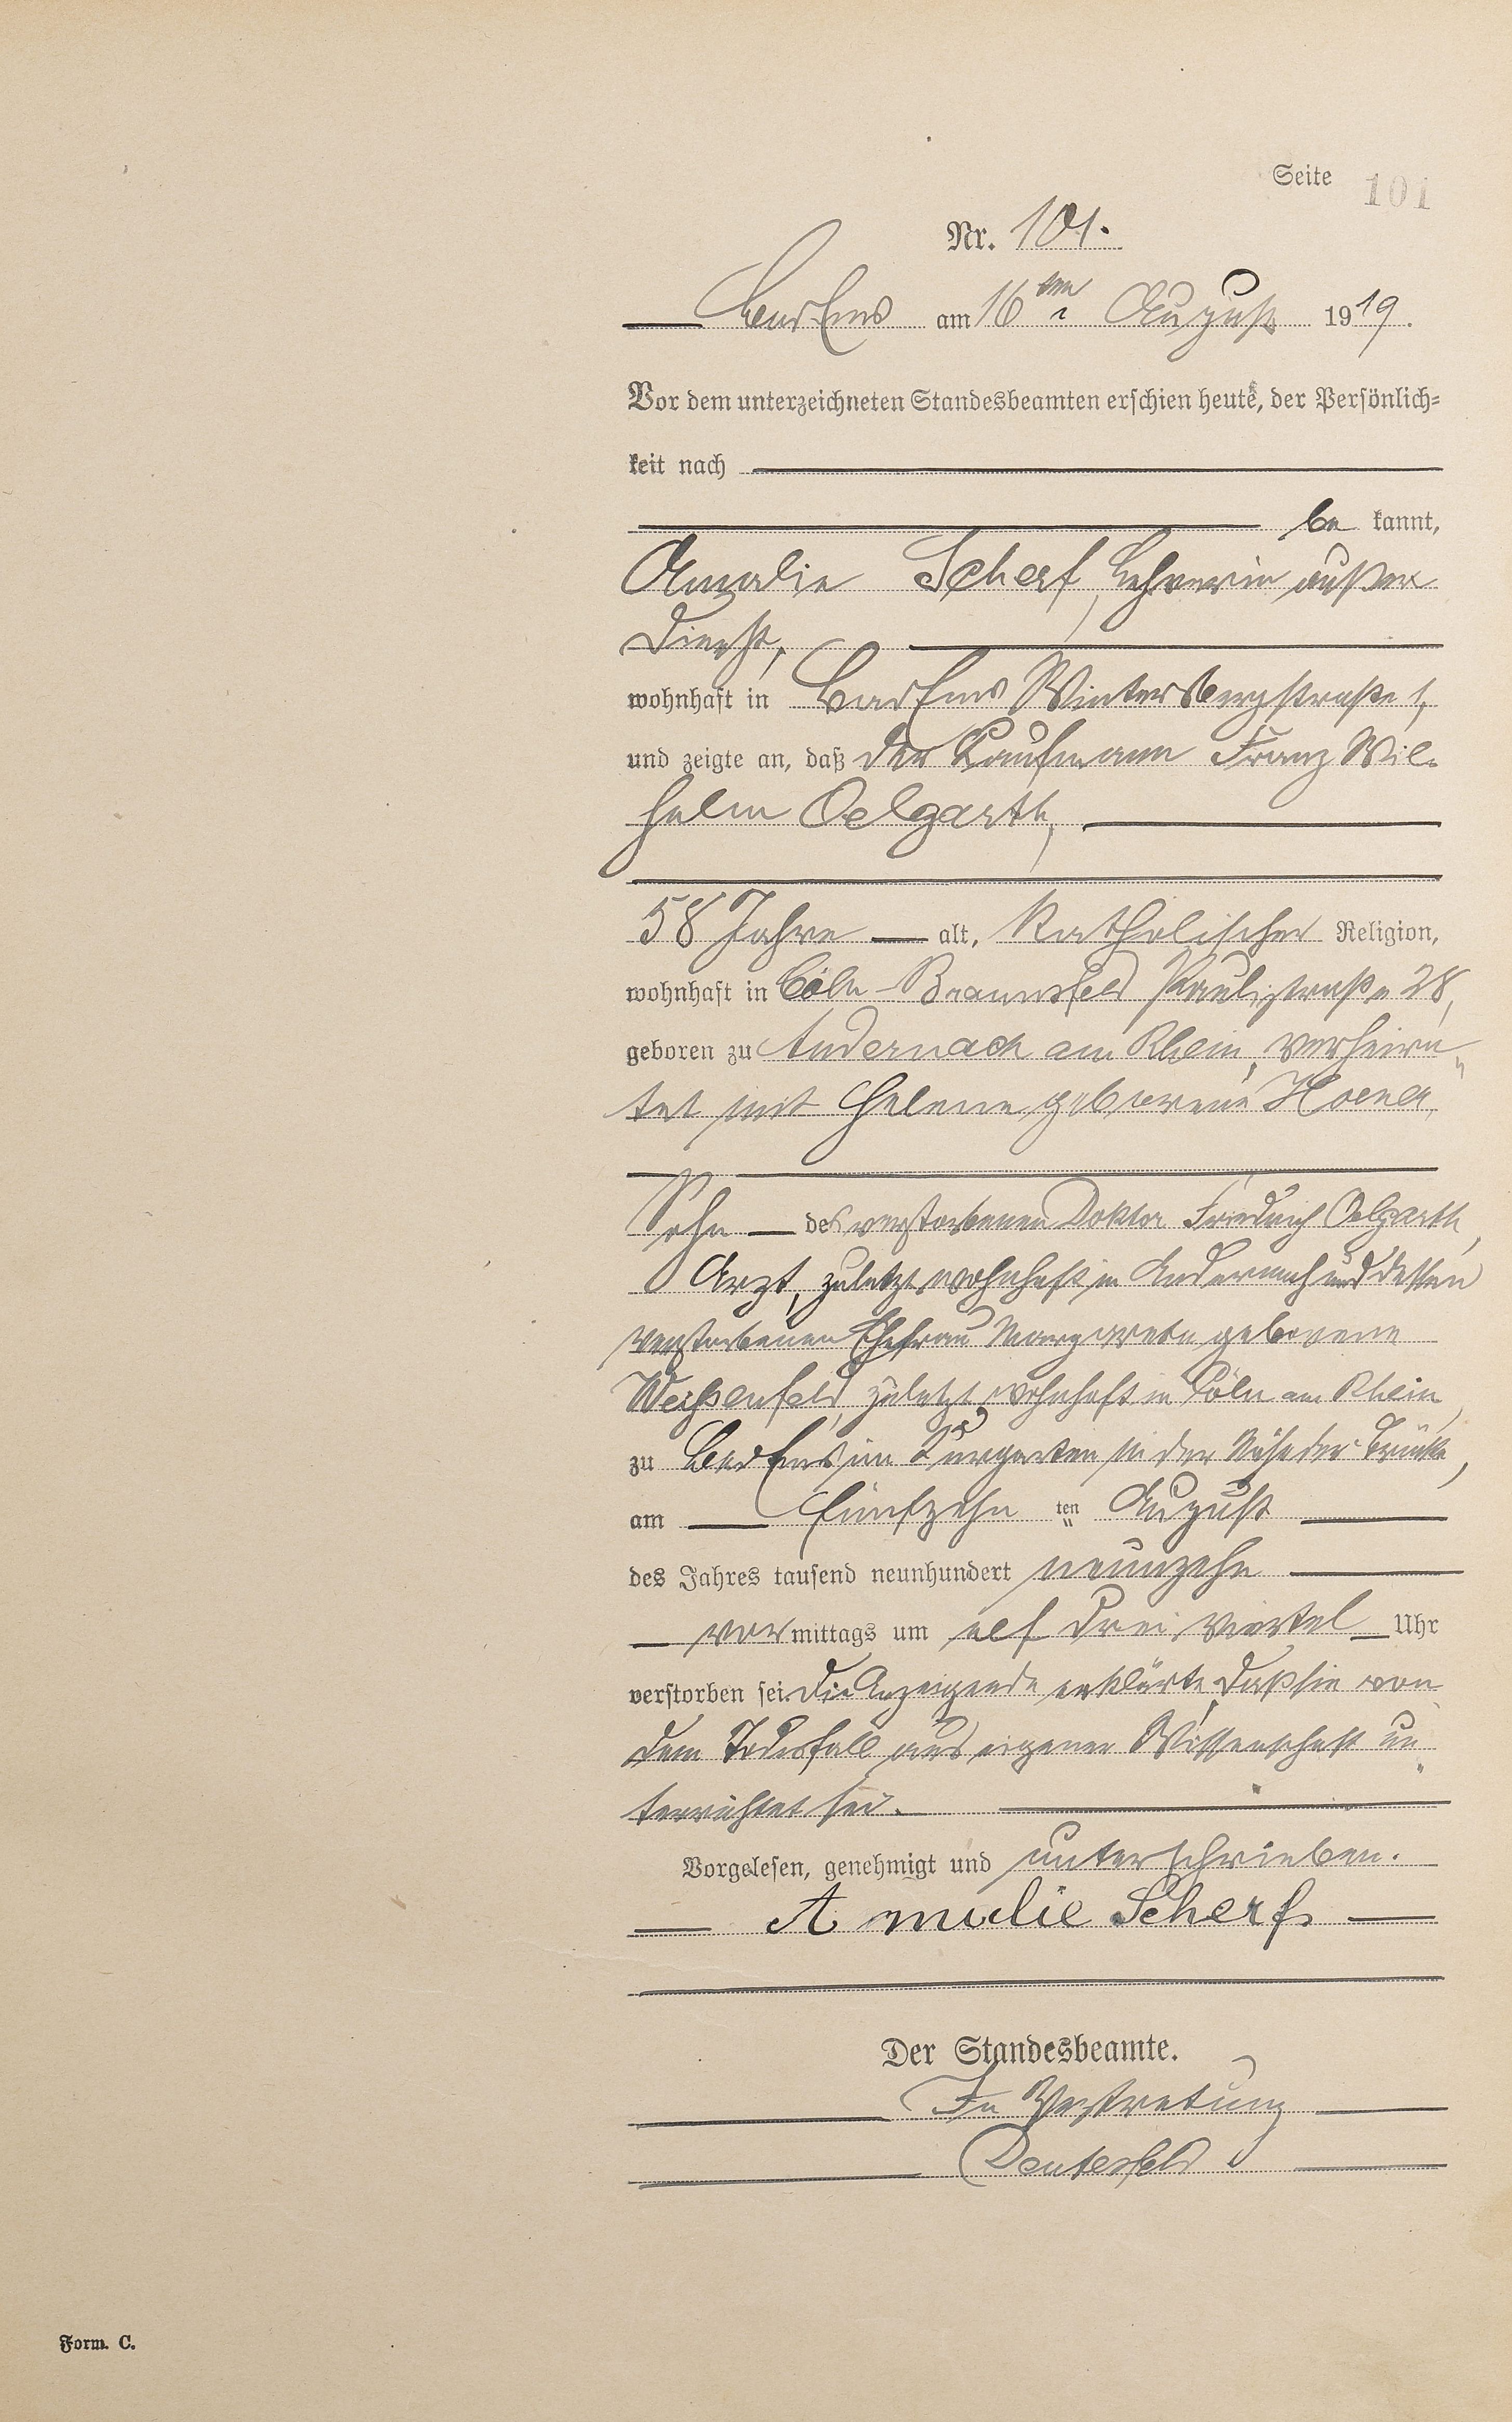 Seite 101
Nr. 101.
Bad Ems am 16ten August 1919.
Vor dem unterzeichneten Standesbeamten erschien heute, der Persönlich-
keit nach
be kannt,
Amalie Scherf, Lehrerin außer
Dienst,
wohnhaft in Bad Ems Wintersbergstraße 1,
und zeigte an, daß der Kaufmann Franz Wil-
helm Oelgarth,
58 Jahre alt, katholischer Religion,
wohnhaft in Cöln-Braunsfeld Paulistraße 28,
geboren zu Andernach am Rhein, verheira-
tet mit Helene geborene
Sohn des verstorbenen Doktor Friedrich Oelgarth,
Arzt, zuletzt wohnhaft in Andernach und dessen
verstorbenen Ehefrau Margareta geborene
Weißenfeld, zuletzt wohnhaft in Cöln am Rhein,
zu Bad Ems im Kurgarten in der Nähe der Brücke,
am fünfzehn ten August
des Jahres tausend neunhundert neunzehn
vor mittags um elf drei viertel Uhr
verstorben sei. Die Anzeigende erklärte, daß sie von
dem Todesfall aus eigener Wissenschaft un-
terrichtet sei.
Vorgelesen, genehmigt und unterschrieben.
Amalie Scherf
Der Standesbeamte.
In Vertretung
Form. C.